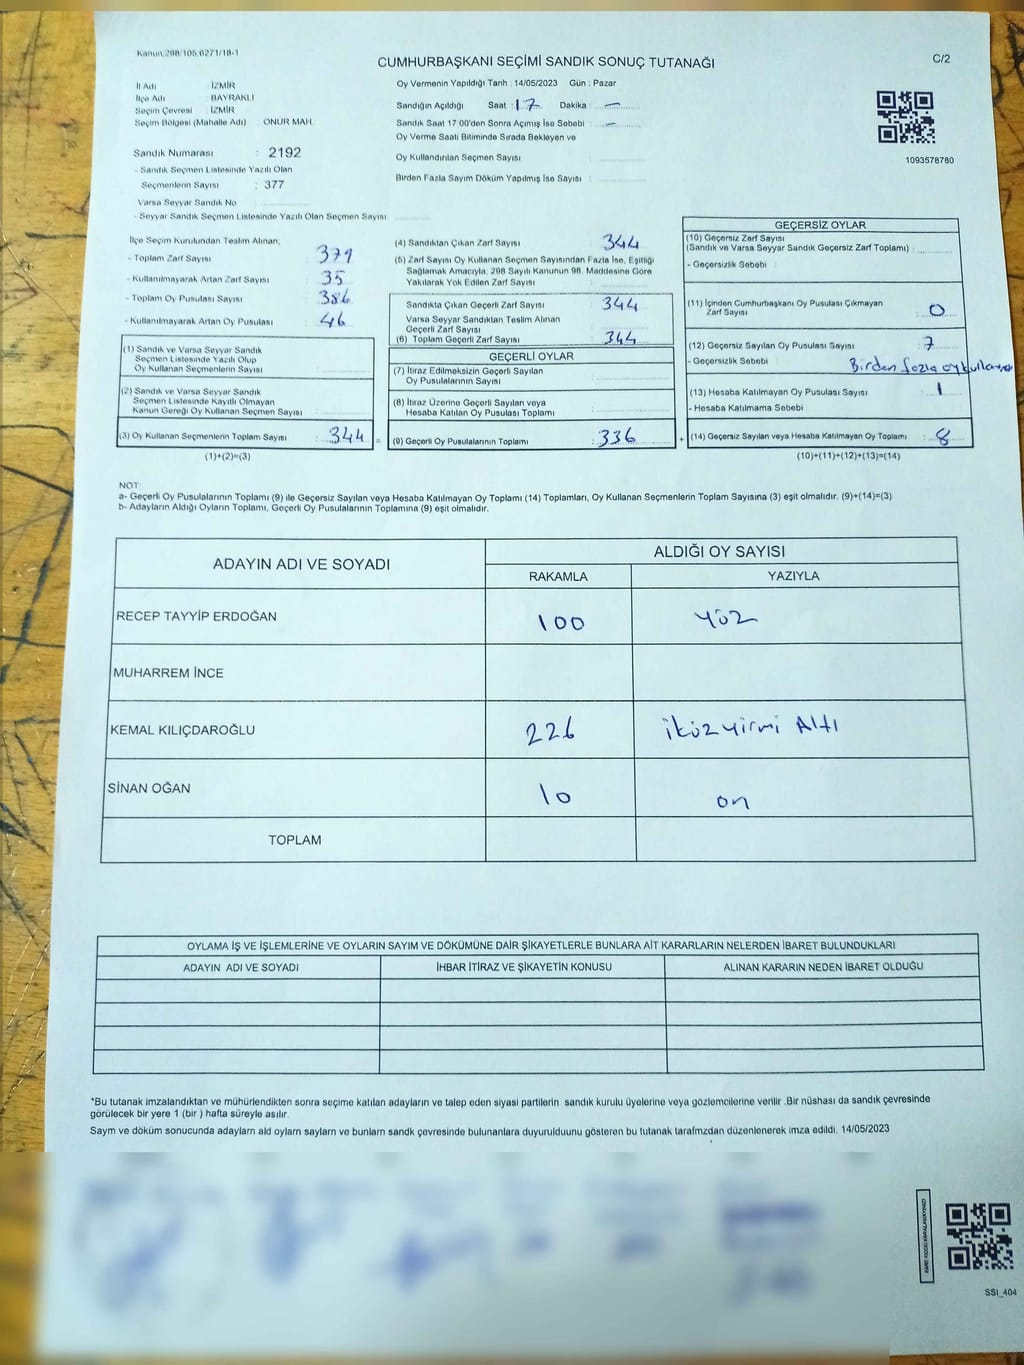 Kanun:298/105,6271/18-1
CUMHURBAŞKANI SEÇİMİ SANDIK SONUÇ TUTANAĞI
C/2
İl Adı : İZMİR
İlçe Adı : BAYRAKLI
Seçim Çevresi : İZMİR
Seçim Bölgesi (Mahalle Adı) : ONUR MAH.
Sandık Numarası : 2192
- Sandık Seçmen Listesinde Yazılı Olan
Seçmenlerin Sayısı : 377
Varsa Seyyar Sandık No :
- Seyyar Sandık Seçmen Listesinde Yazılı Olan Seçmen Sayısı:
Oy Vermenin Yapıldığı Tarih : 14/05/2023 Gün : Pazar
Sandığın Açıldığı Saat : 17 Dakika : —
Sandık Saat 17:00'den Sonra Açımış İse Sebebi : —
Oy Verme Saati Bitiminde Sırada Bekleyen ve
Oy Kullandırılan Seçmen Sayısı :
Birden Fazla Sayım Döküm Yapılmış İse Sayısı :
1093578780
İlçe Seçim Kurulundan Teslim Alınan;
- Toplam Zarf Sayısı : 379
- Kullanılmayarak Artan Zarf Sayısı : 35
- Toplam Oy Pusulası Sayısı : 386
- Kullanılmayarak Artan Oy Pusulası : 46
(1) Sandık ve Varsa Seyyar Sandık
Seçmen Listesinde Yazılı Olup
Oy Kullanan Seçmenlerin Sayısı :
(2) Sandık ve Varsa Seyyar Sandık
Seçmen Listesinde Kayıtlı Olmayan
Kanun Gereği Oy Kullanan Seçmen Sayısı :
(3) Oy Kullanan Seçmenlerin Toplam Sayısı : 344 =
(1)+(2)=(3)
(4) Sandıktan Çıkan Zarf Sayısı : 344
(5) Zarf Sayısı Oy Kullanan Seçmen Sayısından Fazla İse, Eşitliği
Sağlamak Amacıyla, 298 Sayılı Kanunun 98. Maddesine Göre
Yakılarak Yok Edilen Zarf Sayısı :
Sandıkta Çıkan Geçerli Zarf Sayısı : 344
Varsa Seyyar Sandıktan Teslim Alınan
Geçerli Zarf Sayısı :
(6) Toplam Geçerli Zarf Sayısı : 344
GEÇERLİ OYLAR
(7) İtiraz Edilmeksizin Geçerli Sayılan
Oy Pusulalarının Sayısı :
(8) İtiraz Üzerine Geçerli Sayılan veya
Hesaba Katılan Oy Pusulası Toplamı :
(9) Geçerli Oy Pusulalarının Toplamı : 336 +
GEÇERSİZ OYLAR
(10) Geçersiz Zarf Sayısı
(Sandık ve Varsa Seyyar Sandık Geçersiz Zarf Toplamı) :
- Geçersizlik Sebebi :
(11) İçinden Cumhurbaşkanı Oy Pusulası Çıkmayan
Zarf Sayısı : 0
(12) Geçersiz Sayılan Oy Pusulası Sayısı : 7
- Geçersizlik Sebebi : Birden fazla oy
(13) Hesaba Katılmayan Oy Pusulası Sayısı : 1
- Hesaba Katılmama Sebebi :
(14) Geçersiz Sayılan veya Hesaba Katılmayan Oy Toplamı : 8
(10)+(11)+(12)+(13)=(14)
NOT:
a- Geçerli Oy Pusulalarının Toplamı (9) ile Geçersiz Sayılan veya Hesaba Katılmayan Oy Toplamı (14) Toplamları, Oy Kullanan Seçmenlerin Toplam Sayısına (3) eşit olmalıdır. (9)+(14)=(3)
b- Adayların Aldığı Oyların Toplamı, Geçerli Oy Pusulalarının Toplamına (9) eşit olmalıdır.
ADAYIN ADI VE SOYADI
ALDIĞI OY SAYISI
RAKAMLA YAZIYLA
RECEP TAYYİP ERDOĞAN 100 yüz
MUHARREM İNCE
KEMAL KILIÇDAROĞLU 226 iküzyirmi Altı
SİNAN OĞAN 10 on
TOPLAM
OYLAMA İŞ VE İŞLEMLERİNE VE OYLARIN SAYIM VE DÖKÜMÜNE DAİR ŞİKAYETLERLE BUNLARA AİT KARARLARIN NELERDEN İBARET BULUNDUKLARI
ADAYIN ADI VE SOYADI İHBAR İTİRAZ VE ŞİKAYETİN KONUSU ALINAN KARARIN NEDEN İBARET OLDUĞU
*Bu tutanak imzalandıktan ve mühürlendikten sonra seçime katılan adayların ve talep eden siyasi partilerin sandık kurulu üyelerine veya gözlemcilerine verilir .Bir nüshası da sandık çevresinde
görülecek bir yere 1 (bir ) hafta süreyle asılır.
Saym ve döküm sonucunda adaylarn ald oylarn saylarn ve bunlarn sandk çevresinde bulunanlara duyurulduunu gösteren bu tutanak tarafmzdan düzenlenerek imza edildi. 14/05/2023
KARE KODU KARALAMAYINIZ!
SSI_404